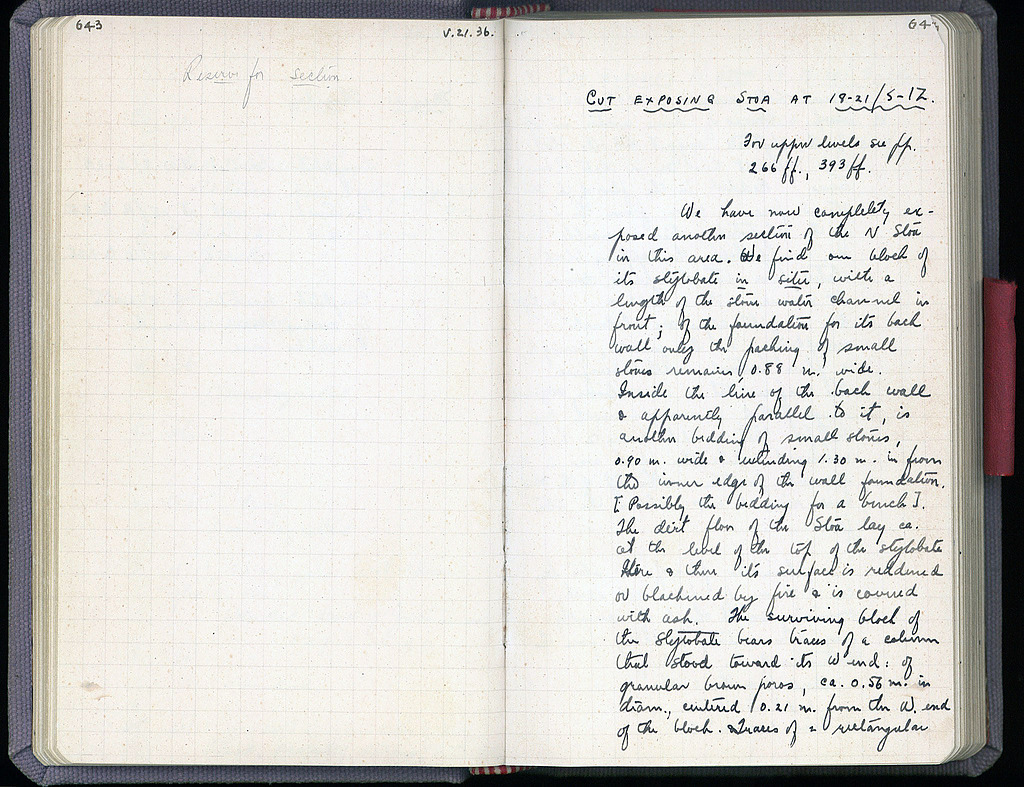 643
V.21.36.
64
Reserve for section.
CUT EXPOSING STOA AT 19-21/5-12.
For upper levels see pp.
266 ff., 393 ff.
We have now completely ex-
posed another section of the N Stoa
in this area. We find one block of
its stylobate in situ, with a
length of the stone water channel in
front; of the foundation for its back
wall only the packing of small
stones remains, 0.88 m. wide.
Inside the line of the back wall
& apparently parallel to it, is
another bedding of small stones,
0.90 m. wide & extending 1.30 m. in from
the inner edge of the wall foundation.
[Possibly the bedding for a bench].
The dirt floor of the Stoa lay ca.
at the level of the top of the stylobate
Here & there its surface is reddened
or blackened by fire & is covered
with ash. The surviving block of
the stylobate bears traces of a column
that stood toward its W end: of
granular brown poros, ca. 0.56 m. in
diam., centered 0.21 m. from the W. end
of the block. Traces of a rectangular